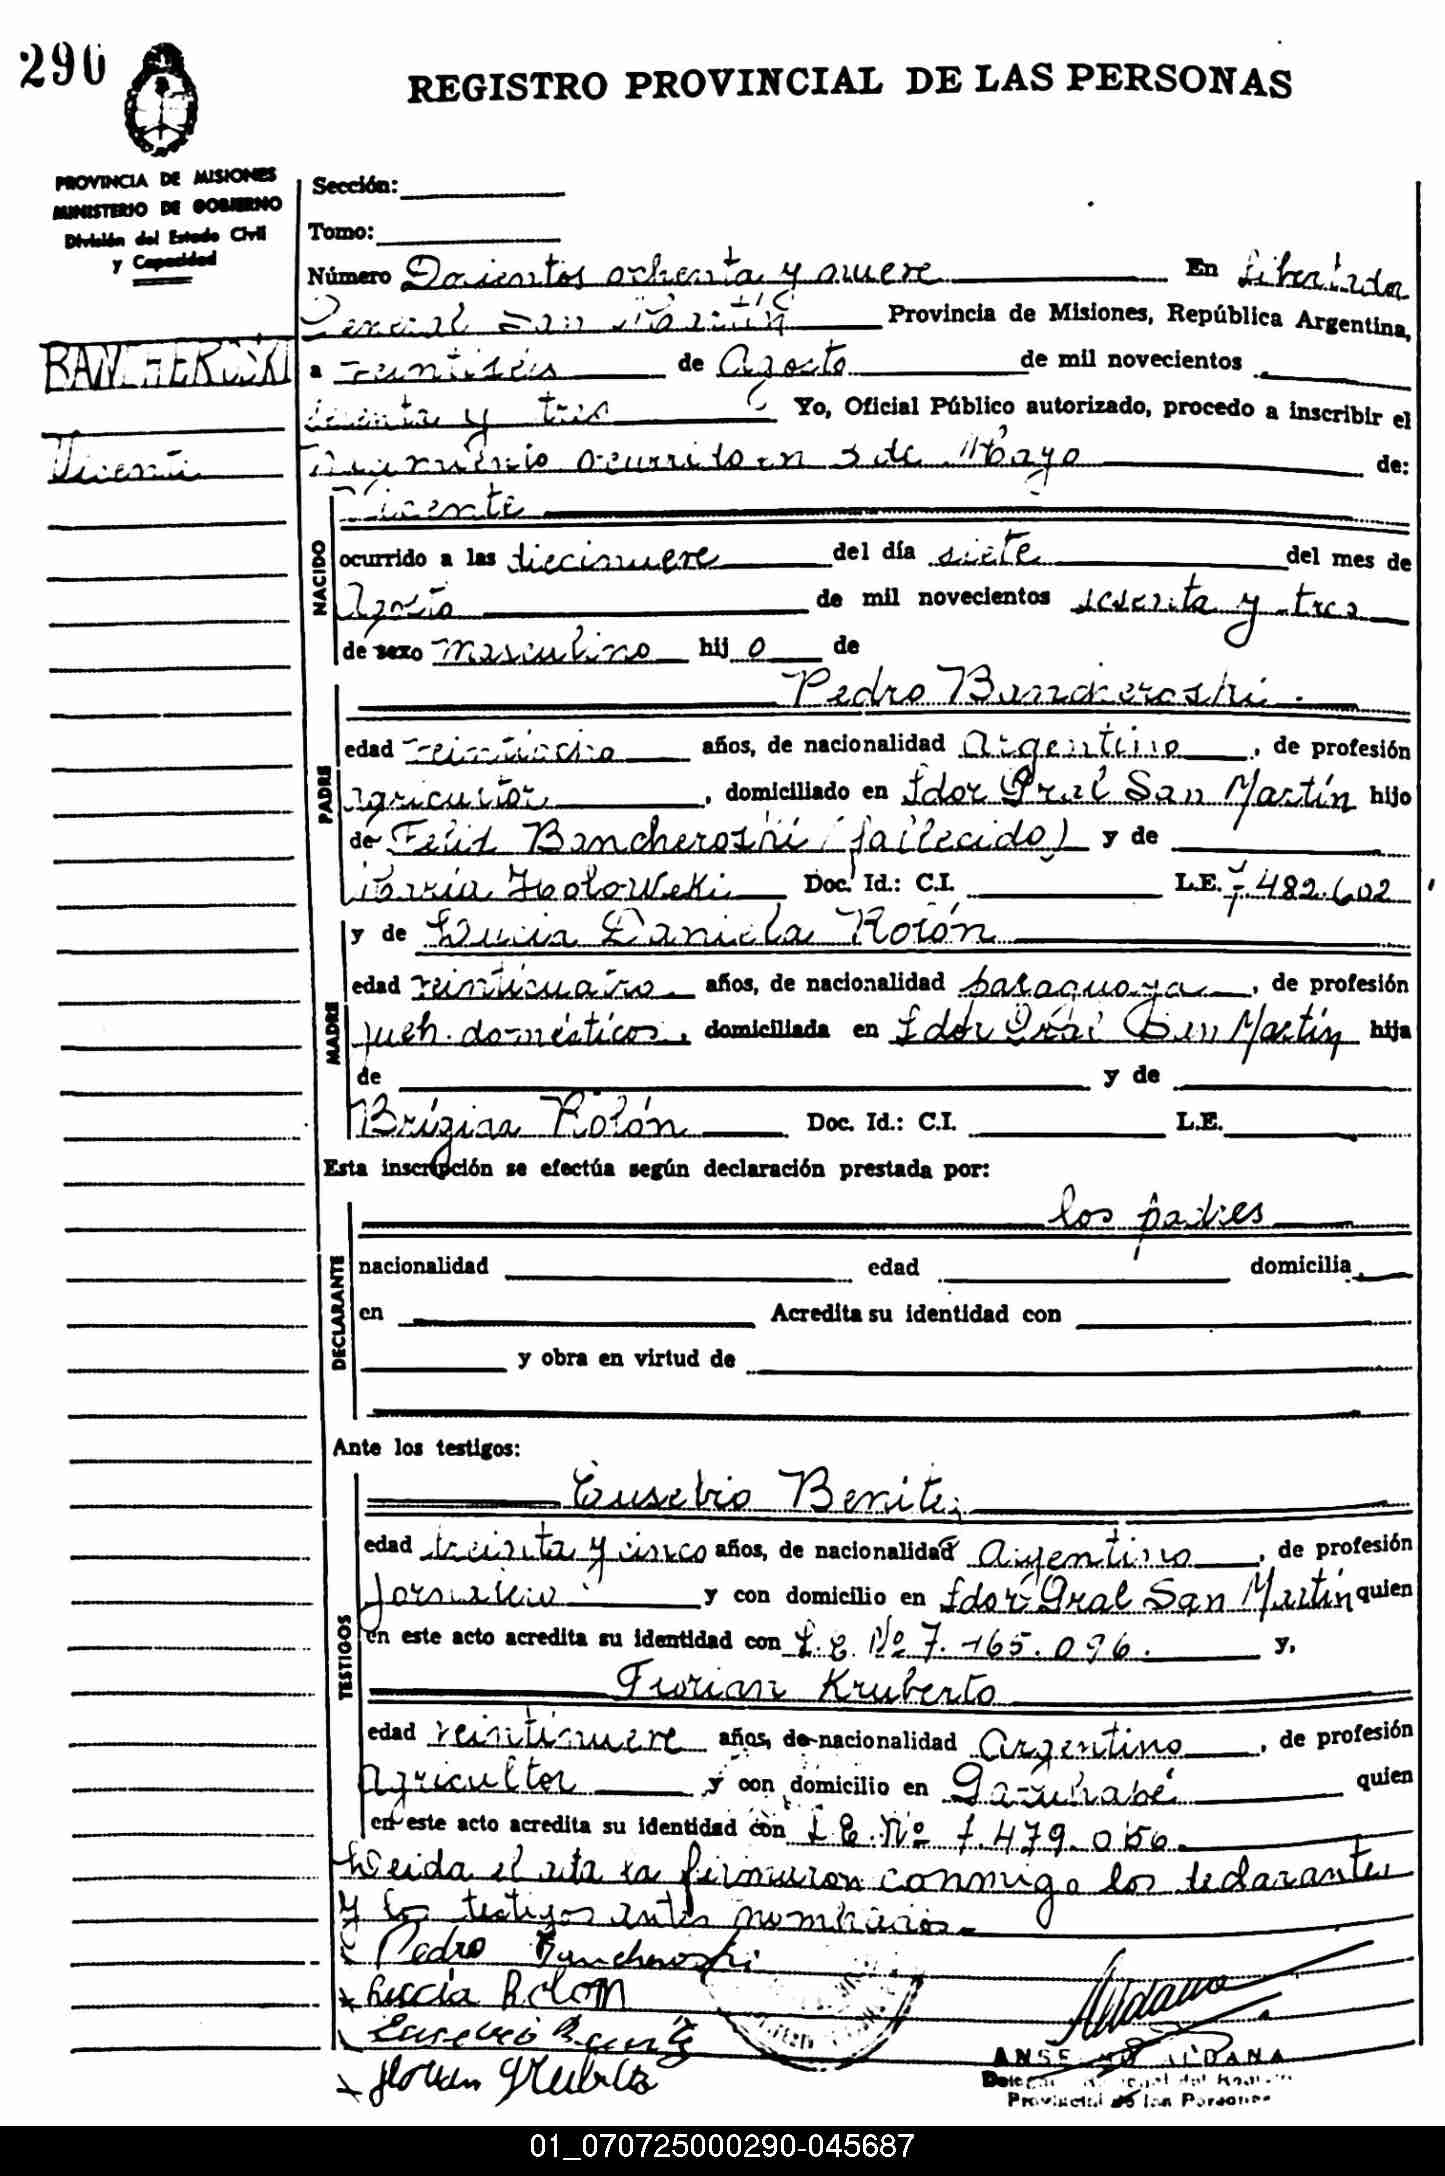 290
REGISTRO PROVINCIAL DE LAS PERSONAS
PROVINCIA DE MISIONES
MINISTERIO DE GOBIERNO
División del Estado Civil
y Capacidad
BANCHEROSKI
Vicente
Sección:
Tomo:
Número Docientos ochenta y nueve En Libertador
General San Martín Provincia de Misiones, República Argentina,
a veintiséis de Agosto de mil novecientos
sesenta y tres Yo, Oficial Público autorizado, procedo a inscribir el
nacimiento ocurrido en 3 de Mayo de:
Vicente
NACIDO
ocurrido a las diecinueve del día siete del mes de
Agosto de mil novecientos sesenta y tres
de sexo masculino hij o de
Pedro Bancheroski
PADRE
edad veintiocho años, de nacionalidad Argentino, de profesión
agricultor, domiciliado en Ldor Gral San Martín hijo
de Felix Bancheroski (fallecido) y de
María Doc. Id.: C.I. L.E. 7.482.602
MADRE
y de Lucia Daniela Rolón
edad veinticuatro años, de nacionalidad paraguaya, de profesión
queh. domésticos, domiciliada en Ldor Gral San Martín hija
de y de
Brígida Rolón Doc. Id.: C.I. L.E.
Esta inscripción se efectúa según declaración prestada por:
los padres
DECLARANTE
nacionalidad edad domicilia
en Acredita su identidad con
y obra en virtud de
Ante los testigos:
TESTIGOS
Eusebio Benitez
edad treinta y cinco años, de nacionalidad Argentino, de profesión
Jornalero y con domicilio en Ldor Gral San Martín quien
en este acto acredita su identidad con L.E. Nº 7.165.096. y,
Florian Kruberto
edad veintinueve años, de nacionalidad Argentino, de profesión
Agricultor y con domicilio en Garuhapé quien
en este acto acredita su identidad con L.E. Nº 7.479.056.
Leida el acta la firmaron conmigo los declarantes
y los testigos antes nombrados.
Pedro Bancheroski
Luccia Rolon
Eusebio Benitez
Aldana
ALDANA
Provincial de las Personas
01_070725000290-045687